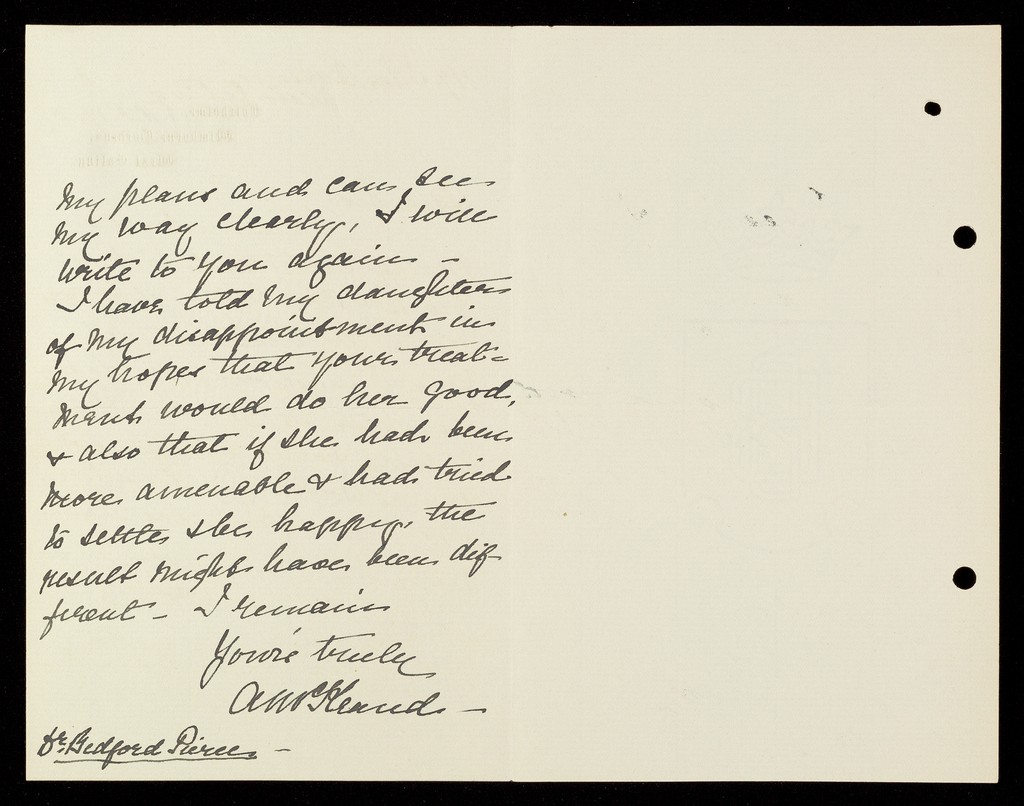 My plans and can see
my way clearly, I will
write to you again -
I have told my daughter
of my disappointment in
my hopes that your treat=
ment would do her good,
& also that if she had been
more amenable & had tried
to settle & be happy, the
result might have been dif
ferent - I remain
Yours truly
A McKeand -
Dr. Bedford Pierce -